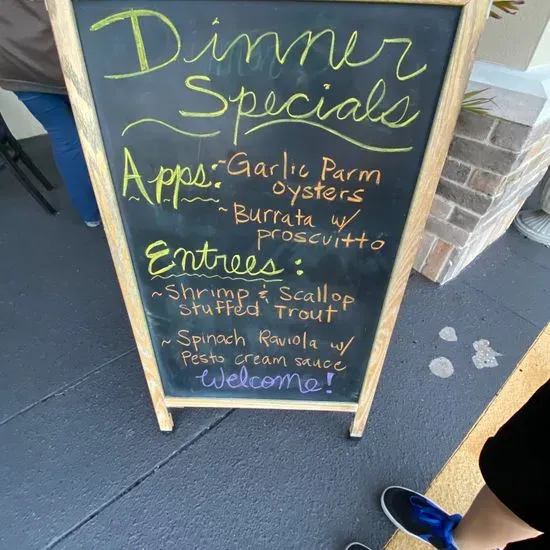 Dinner
Specials
Apps:
~Garlic Parm
oysters
~Burrata w/
proscuitto
Entrees:
~Shrimp & Scallop
stuffed Trout
~Spinach Raviola w/
Pesto cream sauce
Welcome!